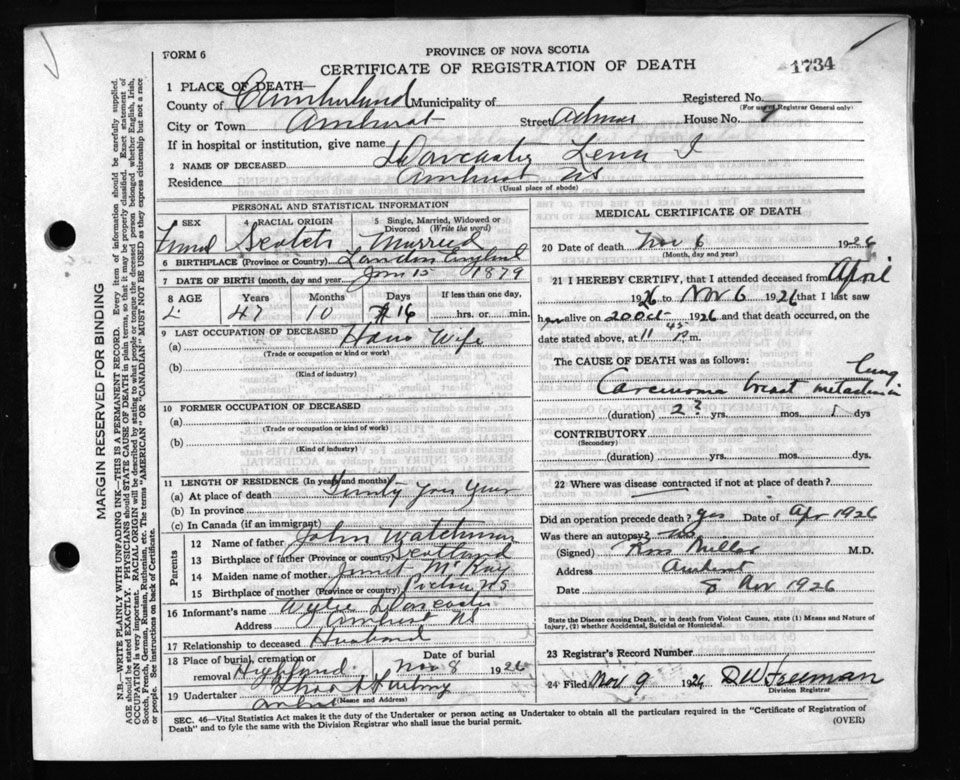 FORM 6
PROVINCE OF NOVA SCOTIA
CERTIFICATE OF REGISTRATION OF DEATH
1734
1 PLACE OF DEATH—
County of Cumberland Municipality of Registered No.
(For use of Registrar General only)
City or Town Amherst Street House No. 7
If in hospital or institution, give name
2 NAME OF DECEASED Lena I
Residence Amherst NS
(Usual place of abode)
PERSONAL AND STATISTICAL INFORMATION
3 SEX 4 RACIAL ORIGIN 5 Single, Married, Widowed or Divorced (Write the word)
Scotch Married
6 BIRTHPLACE (Province or Country) London England
7 DATE OF BIRTH (month, day and year) Jan 15 1879
8 AGE Years Months Days If less than one day,
47 10 16 hrs. or min.
9 LAST OCCUPATION OF DECEASED
(a) House Wife
(Trade or occupation or kind or work)
(b)
(Kind of industry)
10 FORMER OCCUPATION OF DECEASED
(a)
(Trade or occupation or kind of work)
(b)
(Kind of industry)
11 LENGTH OF RESIDENCE (In years and months)
(a) At place of death Twenty
(b) In province
(c) In Canada (if an immigrant)
Parents
12 Name of father John Watchman
13 Birthplace of father (Province or country) Scotland
14 Maiden name of mother Janet McKay
15 Birthplace of mother (Province or country) Pictou NS
16 Informant's name Wylie
Address Amherst NS
17 Relationship to deceased Husband
18 Place of burial, cremation or removal Highland Date of burial Nov 8 1926
19 Undertaker
(Name and Address)
Amherst
MEDICAL CERTIFICATE OF DEATH
20 Date of death Nov 6 1926
(Month, day and year)
21 I HEREBY CERTIFY, that I attended deceased from April
1926 to Nov 6 1926 that I last saw
her alive on 20 Oct 1926 and that death occurred, on
date stated above, at 11 45 p m.
The CAUSE OF DEATH was as follows:
Lung
Carcinoma breast metastasis
(duration) 2? yrs. mos. dys
CONTRIBUTORY
(Secondary)
(duration) yrs. mos. dys.
22 Where was disease contracted if not at place of death?
Did an operation precede death? yes Date of Apr 1926
Was there an autopsy? no
(Signed) Ross Millar M.D.
Address Amherst
Date 8 Nov 1926
State the Disease causing Death, or in death from Violent Causes, state (1) Means and Nature of
Injury, (2) whether Accidental, Suicidal or Homicidal.
23 Registrar's Record Number
24 Filed Nov 9 1926
Division Registrar
SEC. 46—Vital Statistics Act makes it the duty of the Undertaker or person acting as Undertaker to obtain all the particulars required in the "Certificate of Registration of
Death" and to fyle the same with the Division Registrar who shall issue the burial permit.
(OVER)
MARGIN RESERVED FOR BINDING
N.B.—WRITE PLAINLY WITH UNFADING INK—THIS IS A PERMANENT RECORD. Every item of information should be carefully supplied.
AGE should be stated EXACTLY. PHYSICIANS should STATE CAUSE OF DEATH in plain terms, so that it may be properly classified. Exact statement of
OCCUPATION is very important. RACIAL ORIGIN will be described by stating to what people or tongue the deceased person belonged whether English, Irish,
Scotch, French, German, Russian, Ruthenian, etc. The terms "AMERICAN" OR "CANADIAN" MUST NOT BE USED as they express citizenship but not a race
or people. See instructions on back of Certificate.